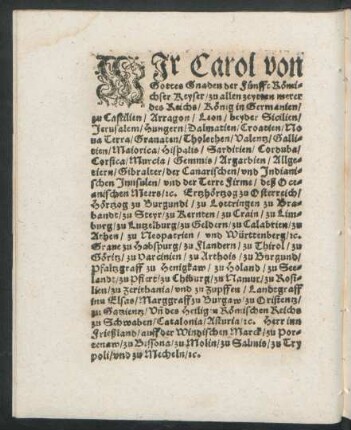 WIr Carol von
Gottes Gnaden der Fünfft Römi-
scher Keyser/ zu allen zeyten merer
des Reichs/ König in Germanien/
zu Castilien/ Arragon/ Leon/ beyder Sicilien/
Jerusalem/ Hungern/ Dalmatien/ Croatien/ No
ua Terra/ Granaten/ Tholethen/ Valentz/ Galli-
tien/ Maiorica/ Hispalis/ Sarditien/ Corduba/
Corsica/ Murcia/ Gemmis/ Argarbien/ Allge-
tiern/ Gibralter/ der Canarischen/ vnd Indiani-
schen Innsulen/ vnd der Terre Firme/ deß Oce-
anischen Meers/ ꝛc. Ertzhörtzog zu Osterreich/
Hörtzog zu Burgundi/ zu Lottringen zu Bra-
bandt/ zu Steyr/ zu Kernten/ zu Crain/ zu Lim-
burg/ zu Lutzelburg/ zu Geldern/ zu Calabrien/ zu
Athen/ zu Neopatrien/ vnd Württenberg/ ꝛc.
Graue zu Habspurg/ zu Flandern/ zu Thirol/ zu
Göritz/ zu Parcinien/ zu Arthois/ zu Burgund/
Pfaltzgraff zu Henigkaw/ zu Holand/ zu See-
landt/ zu Pfierr/ zu Chiburg/ zu Namur/ zu Rossi-
lien/ zu Zerithania/ vnd zu Zupffen/ Landtgraff
inn Elsas/ Marggraff zu Burgaw/ zu Oristentz/
zu Gotzientz/ Vñ des Heilig. Römischen Reichs
zu Schwaben/ Catalonia/ Asturia/ ꝛc. Herr inn
Frießland/ auff der Windischen Marck/ zu Por-
tenaw/ zu Bissona/ zu Molin/ zu Salmis/ zu Try
poli/ vnd zu Mecheln/ ꝛc.